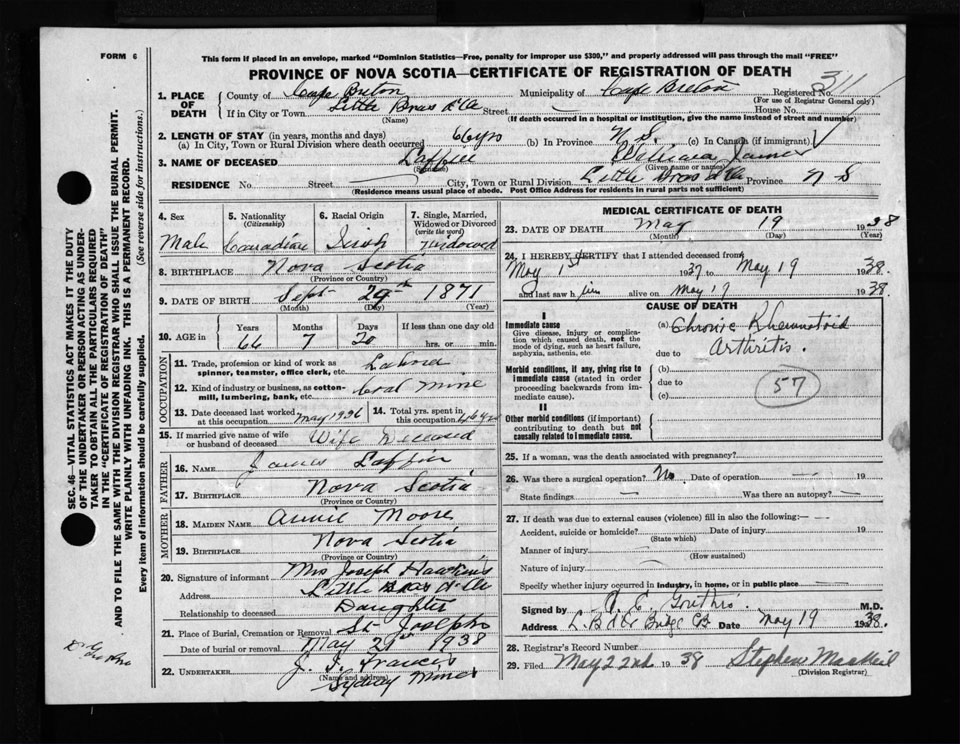 FORM 6
This form if placed in an envelope, marked "Dominion Statistics—Free, penalty for improper use $300," and properly addressed will pass through the mail "FREE"
PROVINCE OF NOVA SCOTIA—CERTIFICATE OF REGISTRATION OF DEATH
311
1. PLACE OF DEATH County of Cape Breton Municipality of Cape Breton Registered No.
(For use of Registrar General only)
If in City or Town Little Bras d'Or Street House No.
(Name) (If death occurred in a hospital or institution, give the name instead of street and number)
2. LENGTH OF STAY (in years, months and days)
(a) In City, Town or Rural Division where death occurred 66 yrs (b) In Province N S. (c) In Canada (if immigrant)
3. NAME OF DECEASED Laffin William James
(Surname) (Given name or names)
RESIDENCE No. Street City, Town or Rural Division Little Bras d'Or Province N S
(Residence means usual place of abode. Post Office Address for residents in rural parts not sufficient)
4. Sex 5. Nationality 6. Racial Origin 7. Single, Married, Widowed or Divorced
(Citizenship) (write the word)
Male Canadian Irish Widowed
8. BIRTHPLACE Nova Scotia
(Province or Country)
9. DATE OF BIRTH Sept 29th 1871
(Month) (Day) (Year)
10. AGE in Years Months Days If less than one day
66 7 20 hrs. or min.
OCCUPATION
11. Trade, profession or kind of work as spinner, teamster, office clerk, etc. Laborer
12. Kind of industry or business, as cotton-mill, lumbering, bank, etc. Coal Mine
13. Date deceased last worked at this occupation May 1936 14. Total yrs. spent in this occupation
15. If married give name of wife or husband of deceased Wife Deceased
FATHER
16. NAME James Laffin
17. BIRTHPLACE Nova Scotia
(Province or Country)
MOTHER
18. MAIDEN NAME Annie Moore
19. BIRTHPLACE Nova Scotia
(Province or Country)
20. Signature of informant Mrs Joseph Hawkins
Address Little Bras d'Or
Relationship to deceased Daughter
21. Place of Burial, Cremation or Removal St Josephs
Date of burial or removal May 21st 1938
22. UNDERTAKER J. J. Francis
(Name and address) Sydney Mines
MEDICAL CERTIFICATE OF DEATH
23. DATE OF DEATH May 19 1938
(Month) (Day) (Year)
24. I HEREBY CERTIFY that I attended deceased from
May 1st 1937 to May 19 1938.
and last saw him alive on May 17 1938.
CAUSE OF DEATH
I
Immediate cause (a) Chronic Rheumatoid
Give disease, injury or complication which caused death, not the mode of dying, such as heart failure, asphyxia, asthenia, etc. due to Arthritis.
Morbid conditions, if any, giving rise to immediate cause (stated in order proceeding backwards from immediate cause). (b)
due to 57
(c)
II
Other morbid conditions (if important) contributing to death but not causally related to immediate cause.
25. If a woman, was the death associated with pregnancy?
26. Was there a surgical operation? No. Date of operation — 19
State findings — Was there an autopsy? —
27. If death was due to external causes (violence) fill in also the following:—
Accident, suicide or homicide? Date of injury 19
(State which)
Manner of injury
(How sustained)
Nature of injury
Specify whether injury occurred in industry, in home, or in public place
Signed by M.D.
Address Date May 19 1938.
28. Registrar's Record Number
29. Filed May 22nd 1938 Stephen MacNeil
(Division Registrar)
SEC. 46—VITAL STATISTICS ACT MAKES IT THE DUTY
OF THE UNDERTAKER OR PERSON ACTING AS UNDER-
TAKER TO OBTAIN ALL THE PARTICULARS REQUIRED
IN THE "CERTIFICATE OF REGISTRATION OF DEATH"
AND TO FILE THE SAME WITH THE DIVISION REGISTRAR WHO SHALL ISSUE THE BURIAL PERMIT.
WRITE PLAINLY WITH UNFADING INK. THIS IS A PERMANENT RECORD.
Every item of information should be carefully supplied. (See reverse side for instructions.)